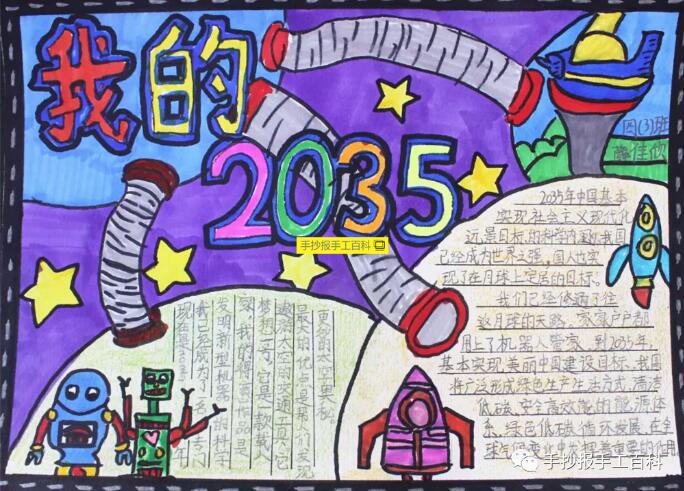 我的
2035
四(3)班
佳欣
手抄报手工百科
2035年中国基本
实现社会主义现代化
远景目标的科学内涵,我国
已经成为世界之强,国人也实
现了在月球上定居的目标。
我们已经修通了往
返月球的天路,家家户户都
用上了机器人管家,到2035年,
基本实现美丽中国建设目标,我国
将广泛形成绿色生产生活方式,清洁
低碳、安全高效能的能源体
系、绿色低碳循环发展,在全
球气候变化中发挥着重要的作用
现在是2035年
我已经成为了一名专门
发明新型机器的科学
家,我的得意作品是
梦想一号,它是一款载人
遨游太空的交通工具,它
最大的优点是帮人们发现
更多的太空奥秘
手抄报手工百科